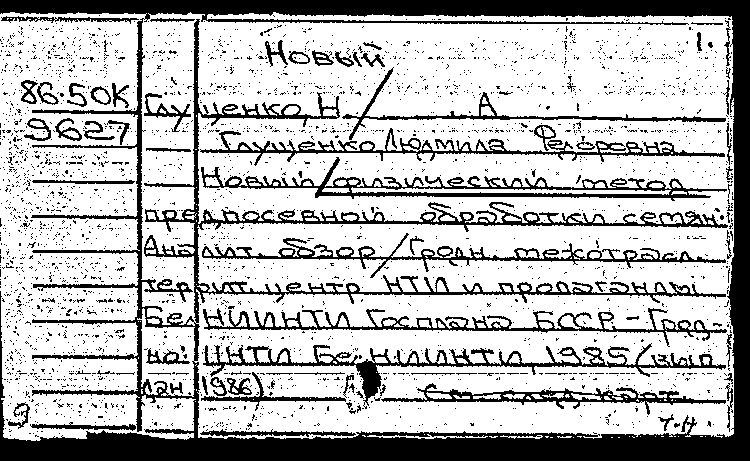 Новый
1.
86.50К
9627
Глущенко, Н. А.
Глущенко, Людмила Федоровна.
Новый физический метод
предпосевной обработки семян:
Аналит. обзор / Гродн. межотрасл.
террит. центр НТИ и пропаганды
БелНИИНТИ Госплана БССР. - Грод-
но: ЦНТИ БелНИИНТИ, 1985 (вып.
дан. 1986).
См. след. карт.
9
Т.Н